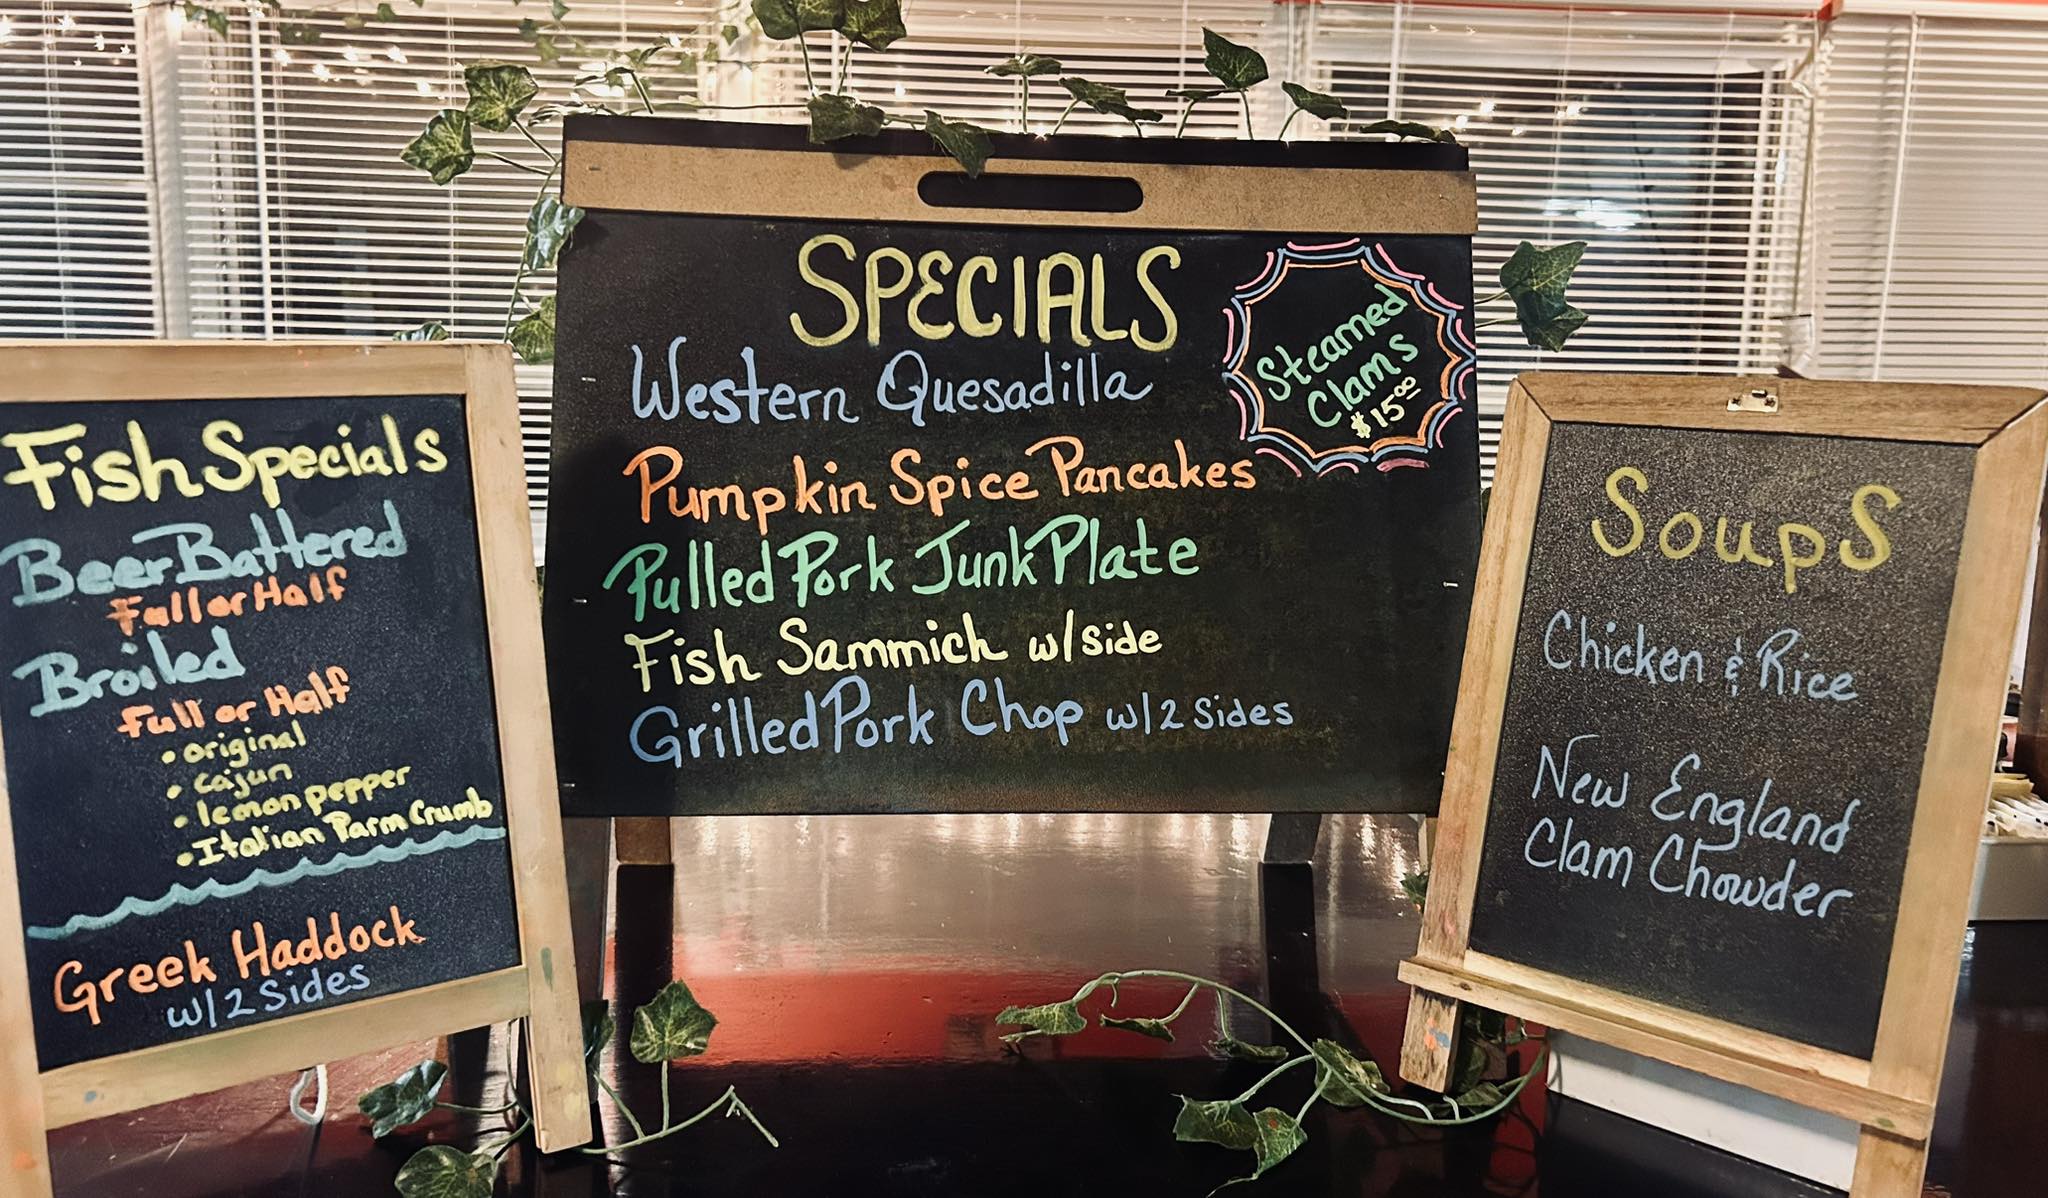 Fish Specials
Beer Battered
Full or Half
Broiled
Full or Half
• original
• Cajun
• lemon pepper
• Italian Parm Crumb
Greek Haddock
w/2 Sides
SPECIALS
Western Quesadilla
Pumpkin Spice Pancakes
Pulled Pork Junk Plate
Fish Sammich w/side
Grilled Pork Chop w/2 Sides
Steamed
Clams
$15.00
SoupS
Chicken & Rice
New England
Clam Chowder